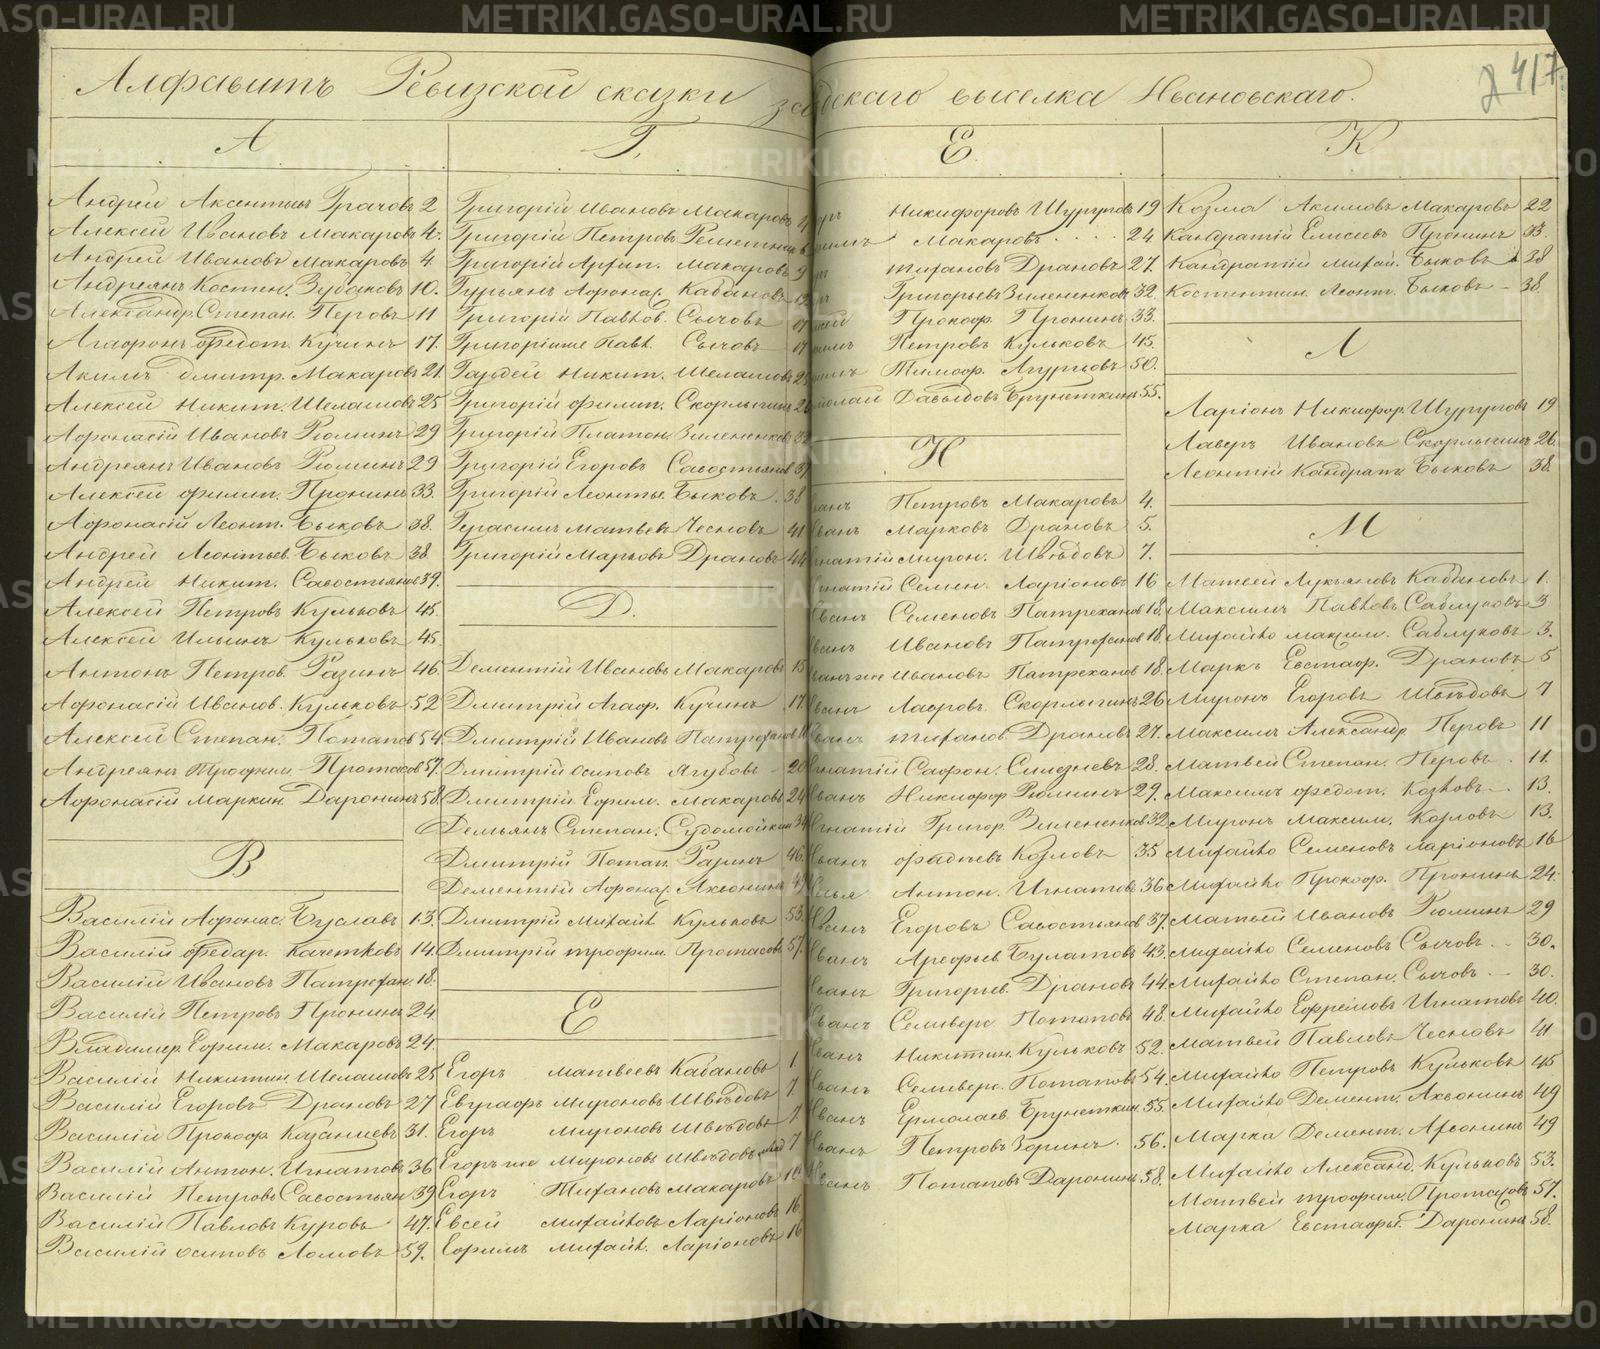 METRIKI.GASO-URAL.RU
Алфавитъ Ревизской сказки заводскаго выселка Ивановскаго.
417
А
Андрей Аксентиев Грачовъ 2
Алексей Ивановъ Макаровъ 4.
Андрей Ивановъ Макаровъ 4
Андреянъ Костен. Зубаковъ 10.
Александр. Степан. Перовъ 11
Агафонъ Федот. Кучинъ 17.
Акимъ Дмитр. Макаровъ 21
Алексей Никит. Шелашовъ 25
Афонасій Ивановъ Рюминъ 29
Андреянъ Ивановъ Рюминъ 29
Алексей Филип. Пронинъ 33.
Афонасій Леонт. Быковъ 38.
Андрей Леонтьев. Быковъ 38.
Андрей Никит. Савостьянов 39.
Алексей Петровъ Кульковъ 45.
Алексей Ильинъ Кульковъ 45
Антонъ Петров. Разинъ 46.
Афонасій Иванов. Кульковъ 52
Алексей Степан. Потапов 54.
Андреянъ Трофим. Протасов 57.
Афонасій Маркин. Даронинъ 58.
В
Василій Афонас. Буславъ 13.
Василій Федар. Качетковъ 14.
Василій Ивановъ Патрехан. 18.
Василій Петровъ Пронинъ 24
Владимер. Ефрим. Макаровъ 24.
Василій Никитин. Шелашовъ 25
Василій Егоровъ Драновъ 27
Василій Прокоф. Казанцевъ 31.
Василій Антон. Игнатовъ 36
Василій Петровъ Савостьян 39
Василій Павловъ Куровъ 47.
Василій Осиповъ Ломовъ 59.
Г.
Григорій Ивановъ Макаровъ 4
Григорій Петровъ
Григорій Архип. Макаровъ 9
Гурьянъ Афонас. Кабановъ 12
Григорій Павлов. Сычовъ
Григорій же Павл. Сычовъ
Гаудей Никит. Шелашовъ 25
Григорій Филип. Скорлыгинъ 26
Григорій Платон. Зилененковъ 32
Григорій Егоровъ Савостьянов 37
Григорій Леонтье. Быковъ 38
Герасимъ Матвеев. Чесновъ 41
Григорій Марковъ Драновъ 44
Д.
Дементій Ивановъ Макаровъ 15
Дмитрій Агаф. Кучинъ 17.
Дмитрій Ивановъ Патрехановъ 18
Дмитрій Осиповъ Ягубовъ 20
Дмитрій Ефрим. Макаровъ 24
Демьянъ Степан. Судомойкин 34
Дмитрій Потап. Разинъ 46.
Дементій Афонас. Аксонинъ 49
Дмитрій Михайл. Кульковъ 53.
Дмитрій Трофим. Протасовъ 57.
Е
Егоръ Матвеевъ Кабановъ 1
Евграфъ Мироновъ Швѣдовъ 7
Егоръ Мироновъ Швѣдовъ 7
Егоръ же Мироновъ Швѣдовъ 7
Егоръ Тихановъ Макаровъ 10
Евсей Михайловъ Ларіоновъ 16.
Ефримъ Михайл. Ларіоновъ 16
Е.
Никифоровъ Шуруповъ 19
Макаровъ. 24
Тихановъ Драновъ 27.
Григорьевъ Зилененковъ 32.
Прокоф. Пронинъ 33.
Петровъ Кульковъ 45.
Тимоф. Ягурновъ 50.
Давыдовъ Брунеткинъ 55.
И
Иванъ Петровъ Макаровъ 4.
Иванъ Марковъ Драновъ 5.
Игнатій Мирон. Швѣдовъ 7.
Игнатій Семен. Ларіоновъ 16
Иванъ Семеновъ Патреханов 18.
Иванъ Ивановъ Патреханов 18.
Иванъ же Ивановъ Патреханов 18
Иванъ Лавров. Скорлыгинъ 26
Иванъ Тиханов. Драновъ 27.
Игнатій Сафон. Силезневъ 28.
Иванъ Никифор. Рюминъ 29.
Игнатій Григор. Зилененков 32.
Иванъ Фадиевъ Козловъ 35
Илья Антон. Игнатовъ 36
Иванъ Егоровъ Савостьянов 37.
Иванъ Арефьев. Булатовъ 43.
Иванъ Григорьев. Драновъ 44
Иванъ Селиверс. Потаповъ 48.
Иванъ Никитин. Кульковъ 52.
Иванъ Селиверс. Потаповъ 54.
Иванъ Ермолаев. Брунеткин 55.
Иванъ Петровъ Зоринъ. 56.
Иванъ Потаповъ Даронинъ 58.
К
Козма Акимовъ Макаровъ 22
Кандратій Елисеевъ Пронинъ 33.
Кандратій Михай. Быковъ 38
Костентин. Леонт. Быковъ 38.
Л
Ларіонъ Никифор. Шуруповъ 19
Лаверъ Ивановъ Скорлыгинъ 26.
Леонтій Кандрат. Быковъ 38.
М
Матвей Лукьяновъ Кабановъ 1.
Максимъ Павловъ Саблуковъ 3
Михайло Максим. Саблуковъ 3.
Маркъ Евстаф. Драновъ 5
Миронъ Егоровъ Швѣдовъ 7
Максимъ Александр. Перовъ 11
Матвей Степан. Перовъ. 11.
Максимъ Федот. Козловъ 13.
Миронъ Максим. Козловъ 13.
Михайло Семеновъ Ларіоновъ 16
Михайло Прокоф. Пронинъ 24.
Матвей Ивановъ Рюминъ 29
Михайло Семеновъ Сычовъ. 30.
Михайло Степан. Сычовъ. 30.
Михайло Ефремовъ Игнатовъ 40.
Матвей Павловъ Чесновъ 41
Михайло Петровъ Кульковъ 45
Михайло Демент. Аксонинъ 49
Марка Демент. Аксонинъ 49
Михайло Александ. Кульковъ 53.
Матвей Трофим. Протасовъ 57.
Марка Евстафьи. Даронинъ 58.